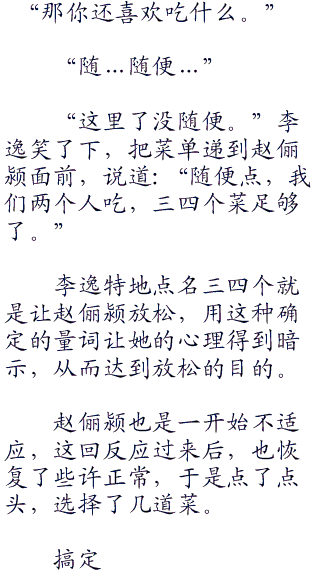 “那你还喜欢吃什么。”
“随…随便…”
“这里了没随便。”李
逸笑了下，把菜单递到赵俪
颍面前，说道：“随便点，我
们两个人吃，三四个菜足够
了。”
李逸特地点名三四个就
是让赵俪颍放松，用这种确
定的量词让她的心理得到暗
示，从而达到放松的目的。
赵俪颍也是一开始不适
应，这回反应过来后，也恢
复了些许正常，于是点了点
头，选择了几道菜。
搞定